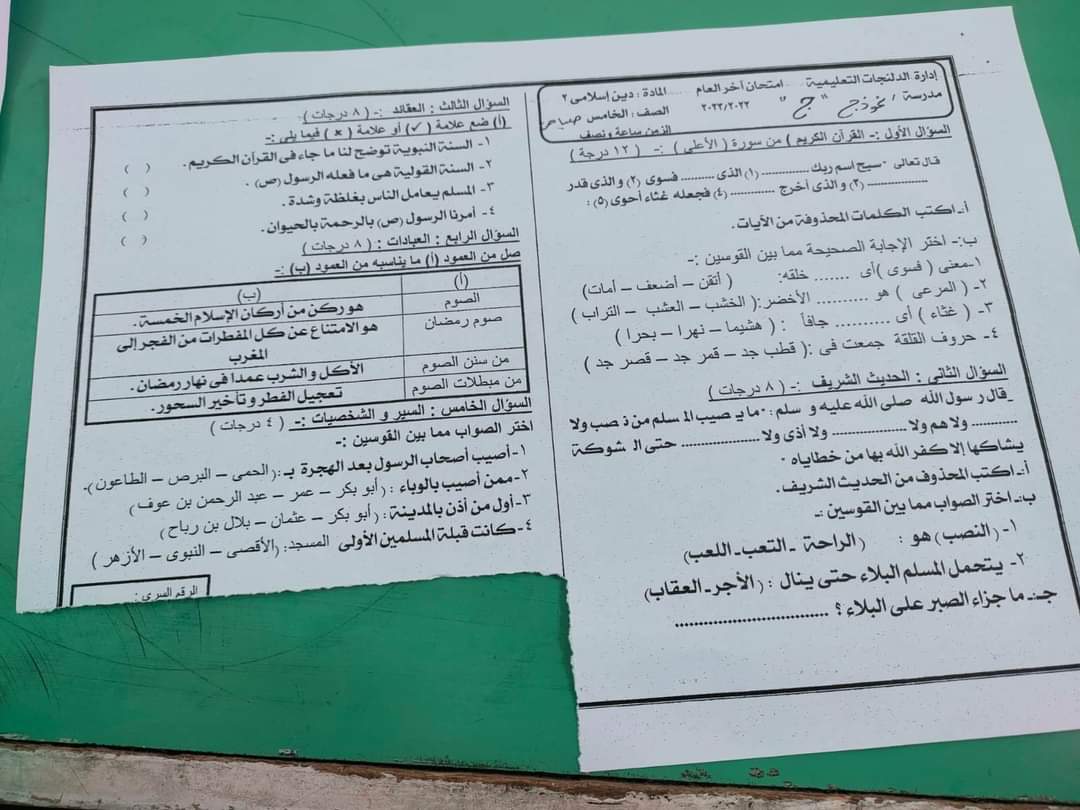 إدارة الدلنجات التعليمية امتحان أخر العام المادة : دين إسلامى ٢
مدرسة / نموذج " ج " ٢٠٢٣/٢٠٢٢ الصف : الخامس صباحى
الزمن ساعة ونصف
السؤال الأول :- القرآن الكريم ) من سورة ( الأعلى ) :- ( ١٢ درجة )
قال تعالى " سبح اسم ربك .............. (١) الذى .......... فسوى (٢) والذى قدر
.............. (٣) والذى أخرج .............. (٤) فجعله غثاء أحوى (٥) :
أ- اكتب الكلمات المحذوفة من الآيات.
ب:- اختر الإجابة الصحيحة مما بين القوسين :-
١-معنى ( فسوى )أى ....... خلقه: ( أتقن – أضعف – أمات)
٢- ( المرعى ) هو .......... الأخضر:( الخشب – العشب – التراب )
٣- ( غثاء ) أى .......... جافاً : ( هشيما – نهرا – بحرا )
٤- حروف القلقة جمعت فى :( قطب جد – قمر جد – قصر جد )
السؤال الثانى : الحديث الشريف :- ( ٨ درجات )
_قال رسول الله صلى الله عليه و سلم : " ما يصيب المسلم من نصب ولا
............ ولا هم ولا .................. ولا أذى ولا .................. حتى الشوكة
يشاكها إلا كفر الله بها من خطاياه "
أ- اكتب المحذوف من الحديث الشريف.
ب:- اختر الصواب مما بين القوسين :-
١- (النصب) هو : (الراحة - التعب- اللعب)
٢- يتحمل المسلم البلاء حتى ينال : (الأجر- العقاب)
جـ:- ما جزاء الصبر على البلاء ؟ ..............................
السؤال الثالث : العقائد :- ( ٨ درجات )
(أ) ضع علامة ( ✓ ) أو علامة ( × ) فيما يلى :-
١- السنة النبوية توضح لنا ما جاء فى القرآن الكريم . ( )
٢- السنة القولية هى ما فعله الرسول (ص) . ( )
٣- المسلم يعامل الناس بغلظة وشدة . ( )
٤- أمرنا الرسول (ص) بالرحمة بالحيوان. ( )
السؤال الرابع : العبادات : ( ٨ درجات )
صل من العمود (أ) ما يناسبه من العمود (ب) :-
(أ) (ب)
الصوم هو ركن من أركان الإسلام الخمسة .
صوم رمضان هو الامتناع عن كل المفطرات من الفجر إلى
المغرب
من سنن الصوم الأكل و الشرب عمدا فى نهار رمضان .
من مبطلات الصوم تعجيل الفطر و تأخير السحور .
السؤال الخامس : السير و الشخصيات :- ( ٤ درجات )
اختر الصواب مما بين القوسين :-
١-أصيب أصحاب الرسول بعد الهجرة بـ : (الحمى – البرص – الطاعون).
٢-ممن أصيب بالوباء : (أبو بكر – عمر – عبد الرحمن بن عوف )
٣-أول من أذن بالمدينة : (أبو بكر – عثمان – بلال بن رباح )
٤-كانت قبلة المسلمين الأولى المسجد: (الأقصى – النبوى – الأزهر )
الرقم السرى :